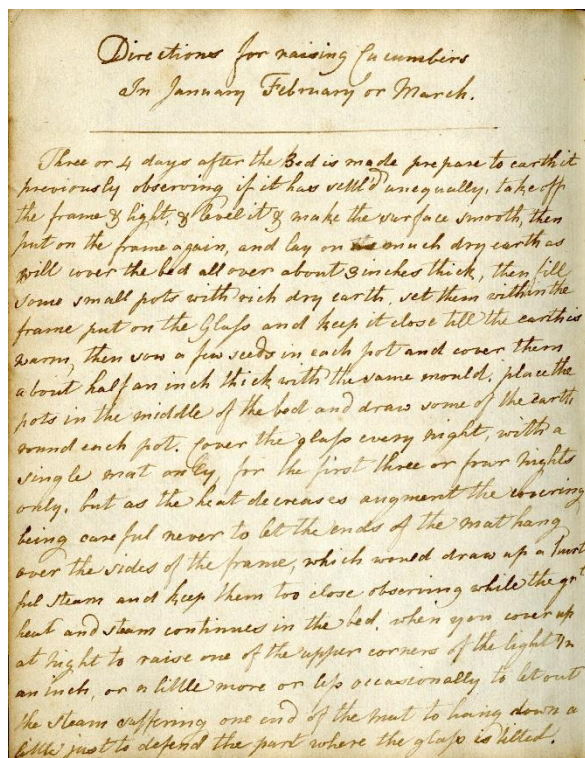 Directions for raising Cucumbers
In January February or March.
Three or 4 days after the Bed is made prepare to earth it
previously observing if it has settl'd unequally, take off
the frame & light, & level it & make the surface smooth, then
put on the frame again, and lay on much dry earth as
will cover the bed all over about 3 inches thick, then fill
some small pots with rich dry earth, set them within the
frame put on the Glass and keep it close till the earth is
warm, then sow a few seeds in each pot and cover them
about half an inch thick with the same mould, place the
pots in the middle of the bed and draw some of the earth
round each pot. Cover the glass every night, with a
single mat only for the first three or four nights
only, but as the heat decreases augment the covering
being careful never to let the ends of the mat hang
over the sides of the frame, which would draw up a hurt
ful steam and keep them too close observing while the grt
heat and steam continues in the bed, when you cover up
at night to raise one of the upper corners of the light
an inch, or a little more or less occasionally to let out
the steam suffering one end of the mat to hang down a
little just to defend the part where the glass is tilted.